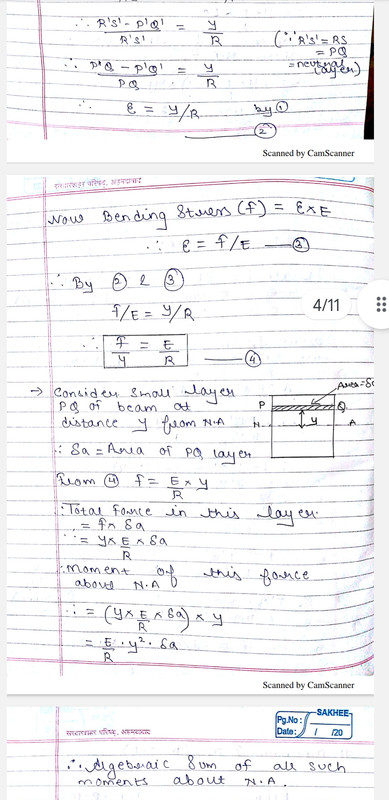 ∴ R'S' - P'Q' / R'S' = y / R (∵ R'S' = RS
= PQ
= neutral layer)
∴ PQ - P'Q' / PQ = y / R
∴ ε = y/R by ①
②
Scanned by CamScanner
Now Bending Stress (f) = ε × E
∴ ε = f/E — ③
∴ By ② & ③
f/E = y/R
4/11
∴ f / y = E / R — ④
→ Consider small layer
PQ of beam at
distance y from N.A
∴ δa = Area of PQ layer
Area = δa
P Q
N y A
from ④ f = E / R × y
∴ Total force in this layer
= f × δa
∴ = y × E / R × δa
∴ moment of this force
about N.A
∴ = (y × E / R × δa) × y
= E / R · y² · δa
Scanned by CamScanner
SAKHEE
Pg.No :
Date : / /20
∴ Algebraic Sum of all such
moments about N.A.